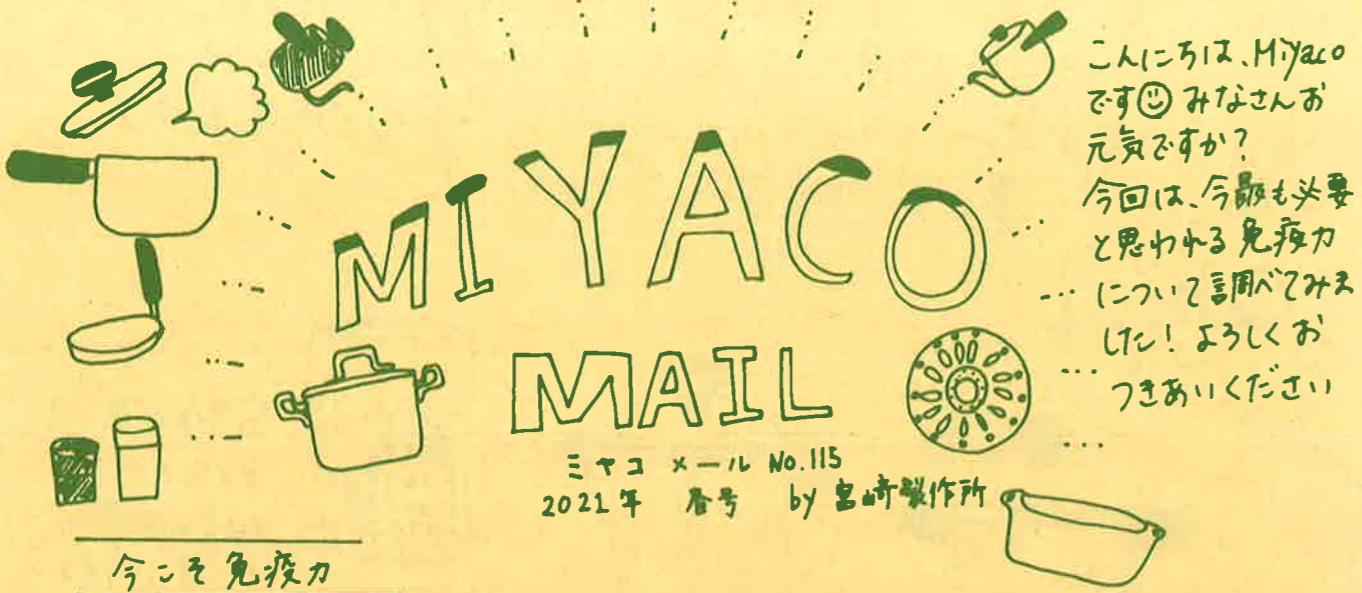 MIYACO
MAIL
ミヤコ メール No.115
2021年 春号 by 宮崎製作所
こんにちは、Miyaco
です みなさんお
元気ですか?
今回は、今最も必要
と思われる免疫力
について調べてみま
した!よろしくお
つきあいください
今こそ免疫力